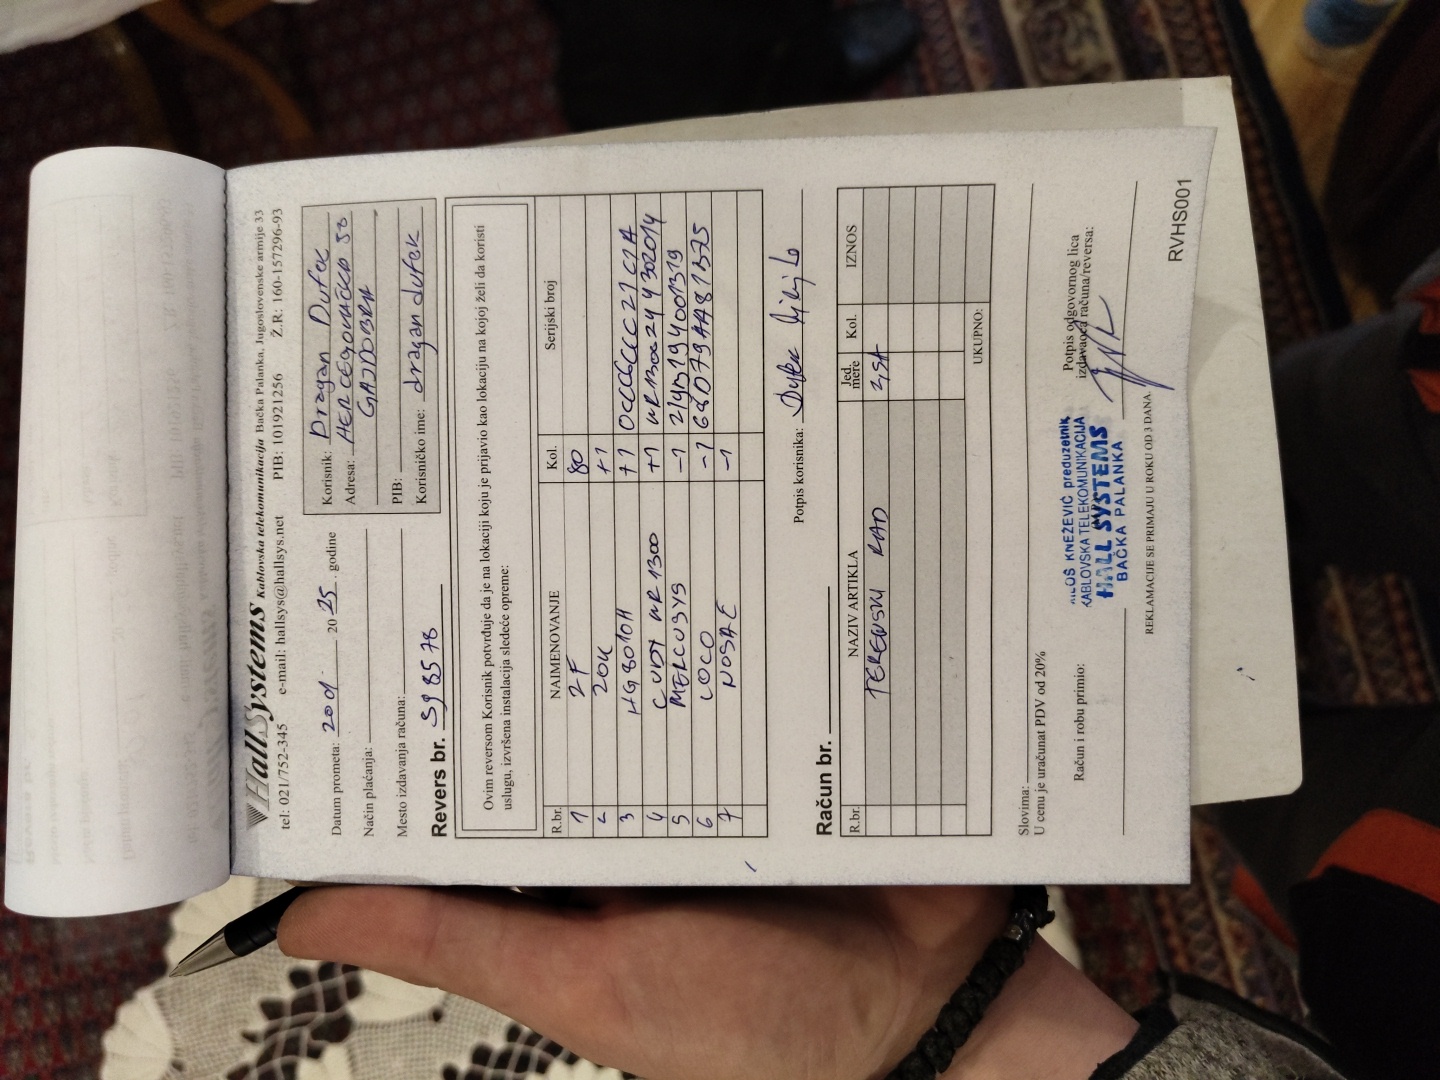 HallSystems Kablovska telekomunikacija Bačka Palanka, Jugoslovenske armije 33
tel: 021/752-345 e-mail: hallsys@hallsys.net PIB: 101921256 Ž.R: 160-157296-93
Datum prometa: 2001 2025. godine
Način plaćanja:
Mesto izdavanja računa:
Korisnik: Dragan Dufek
Adresa: HERCEGOVAČKA 50
GAJDOBRA
PIB:
Korisničko ime: dragan dufek
Revers br. 598578
Ovim reversom Korisnik potvrđuje da je na lokaciji koju je prijavio kao lokaciju na kojoj želi da koristi
uslugu, izvršena instalacija sledeće opreme:
R.br. NAIMENOVANJE Kol. Serijski broj
1 2F 80
2 ZOK +1
3 HG8010H +1
4 CUDY WR1300 +1 WR1300244302014
5 MERCUSYS -1
6 LOCO -1
7 NOSAČ -1
Potpis korisnika: Dufek
Račun br.
R.br. NAZIV ARTIKLA Jed. mere Kol. IZNOS
TERENSKI RAD
UKUPNO:
Slovima:
U cenu je uračunat PDV od 20%
Račun i robu primio:
Potpis odgovornog lica
izdavaoca računa/reversa:
MILOŠ KNEŽEVIĆ preduzetnik
KABLOVSKA TELEKOMUNIKACIJA
HALL SYSTEMS
BAČKA PALANKA
REKLAMACIJE SE PRIMAJU U ROKU OD 3 DANA.
RVHS001